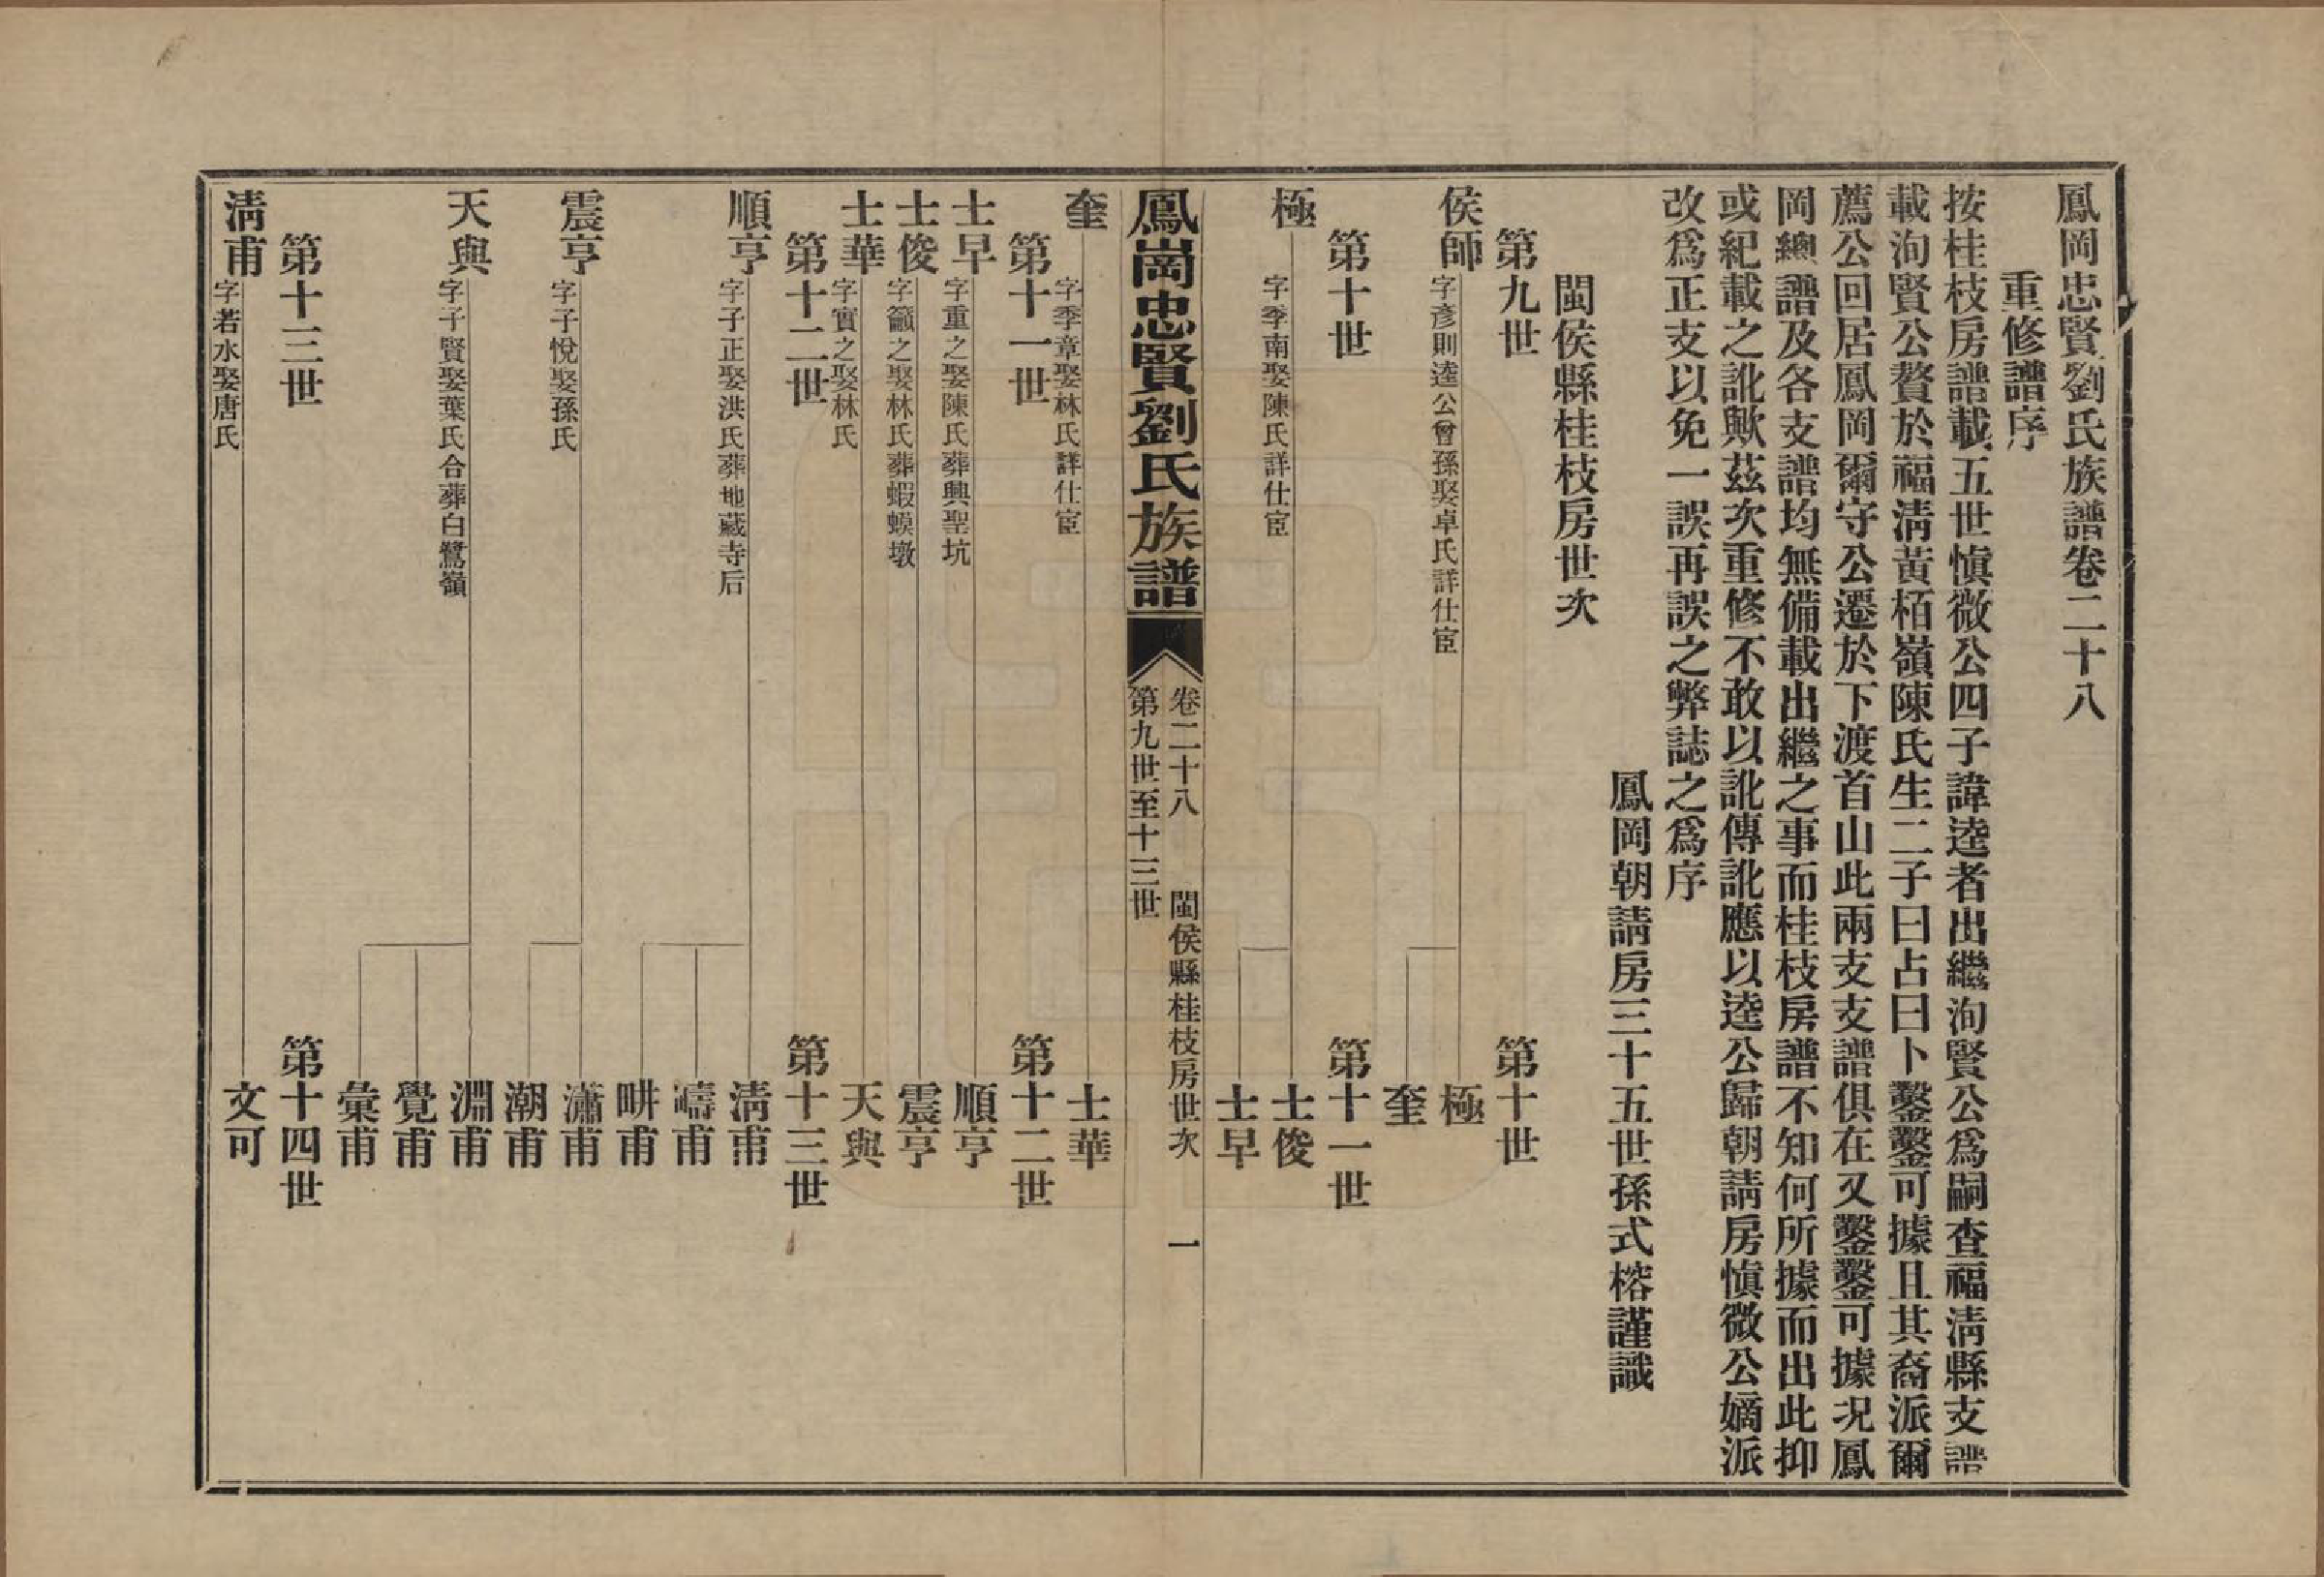 鳳岡忠賢劉氏族譜卷二十八
重修譜序
按桂枝房譜載五世愼微公四子諱逵者出繼洵賢公爲嗣查福淸縣支譜
載洵賢公贅於福淸黃栢嶺陳氏生二子曰占曰卜鑿鑿可據且其裔派爾
薦公回居鳳岡爾守公遷於下渡首山此兩支支譜俱在又鑿鑿可據况鳳
岡總譜及各支譜均無備載出繼之事而桂枝房譜不知何所據而出此抑
或紀載之訛歟茲次重修不敢以訛傳訛應以逵公歸朝請房愼微公嫡派
改爲正支以免一誤再誤之弊誌之爲序
鳳岡朝請房三十五世孫式榕謹識
閩侯縣桂枝房世次
第九世
第十世
侯師
字彥則逵公曾孫娶卓氏詳仕宦
極
奎
第十世
第十一世
極
字季南娶陳氏詳仕宦
士俊
士早
鳳崗忠賢劉氏族譜
卷二十八
閩侯縣桂枝房世次
一
第九世至十三世
奎
字季章娶林氏詳仕宦
士華
第十一世
第十二世
士早
字重之娶陳氏葬興聖坑
順亨
士俊
字籲之娶林氏葬蝦蟆墩
震亨
士華
字實之娶林氏
天與
第十二世
第十三世
順亨
字子正娶洪氏葬地藏寺后
淸甫
疇甫
畊甫
震亨
字子悅娶孫氏
瀟甫
潮甫
天與
字子賢娶葉氏合葬白鷺嶺
淵甫
覺甫
彙甫
第十三世
第十四世
淸甫
字若水娶唐氏
文可